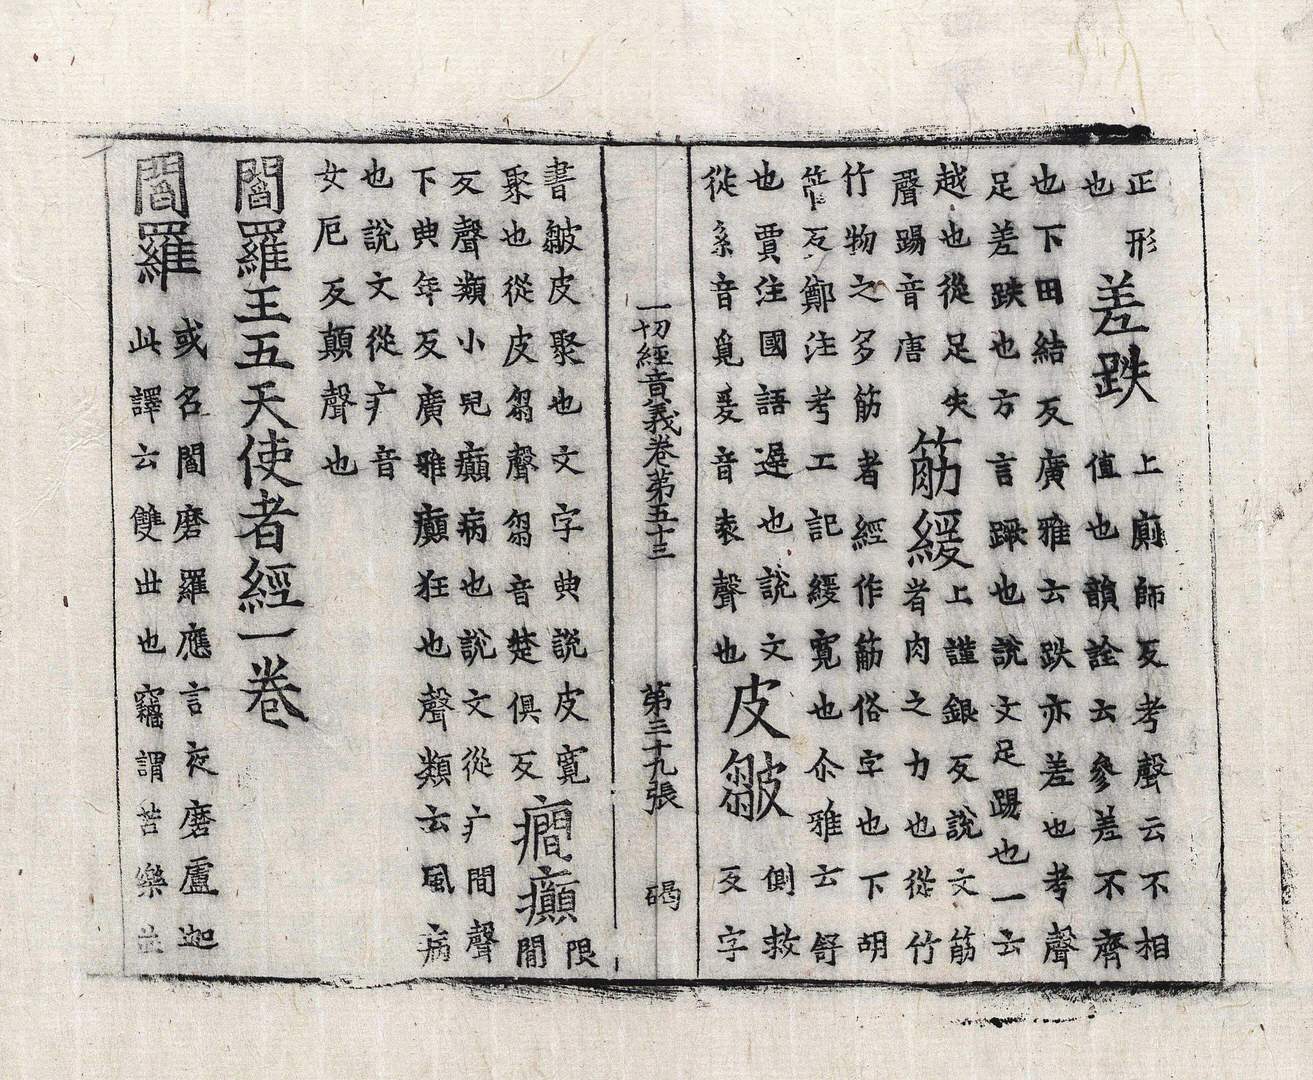 正形
也
差跌
上廁師反考聲云不相
值也韻詮云參差不齊
也下田結反廣雅云跌亦差也考聲
足差跌也方言蹶也說文足踢也一云
越也從足失
聲踢音唐
筋緩
上謹銀反說文筋
者肉之力也從竹
竹物之多筋者經作筯俗字也下胡
管反鄭注考工記緩寬也尒雅云舒
也賈注國語遲也說文
從系音覓爰音袁聲也
皮皺
側救
反字
一切經音義卷第五十三 第三十九張 碣
書皺皮聚也文字典說皮寬
聚也從皮芻聲芻音楚俱反
癇癲
限
閒
反聲類小兒癲病也說文從疒間聲
下典年反廣雅癲狂也聲類云風病
也說文從疒音
女厄反顛聲也
閻羅王五天使者經一卷
閻羅
或名閻磨羅應言夜磨盧迦
此譯云雙世也竊謂苦樂並